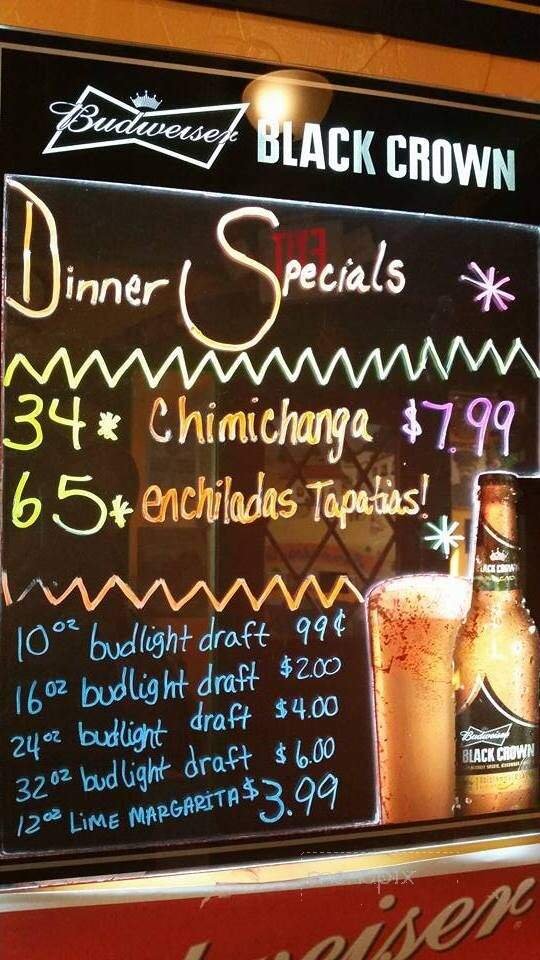 Budweiser BLACK CROWN
Dinner Specials *
34* Chimichanga $7.99
65* enchiladas Tapatias!
*
BLACK CROWN
10oz budlight draft 99¢
16oz budlight draft $2.00
24oz budlight draft $4.00
32oz budlight draft $6.00
12oz LIME MARGARITA $3.99
Budweiser
BLACK CROWN
menupix
weiser